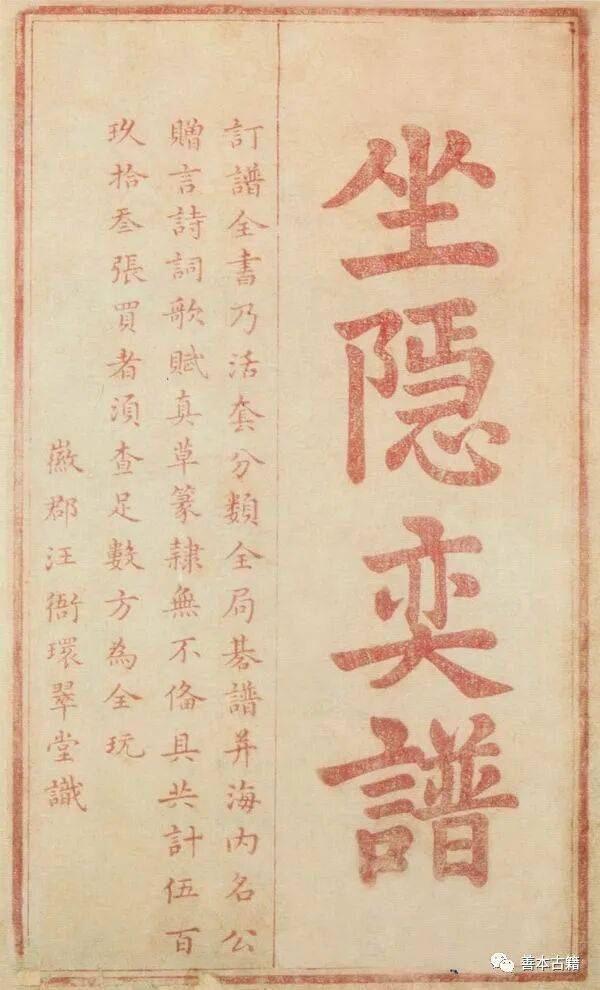 坐隱奕譜
訂譜全書乃活套分類全局棊譜并海内名公
贈言詩詞歌賦真草篆隷無不俻具共計伍百
玖拾叁張買者湏查足數方為全玩
徽郡汪衙環翠堂識
善本古籍